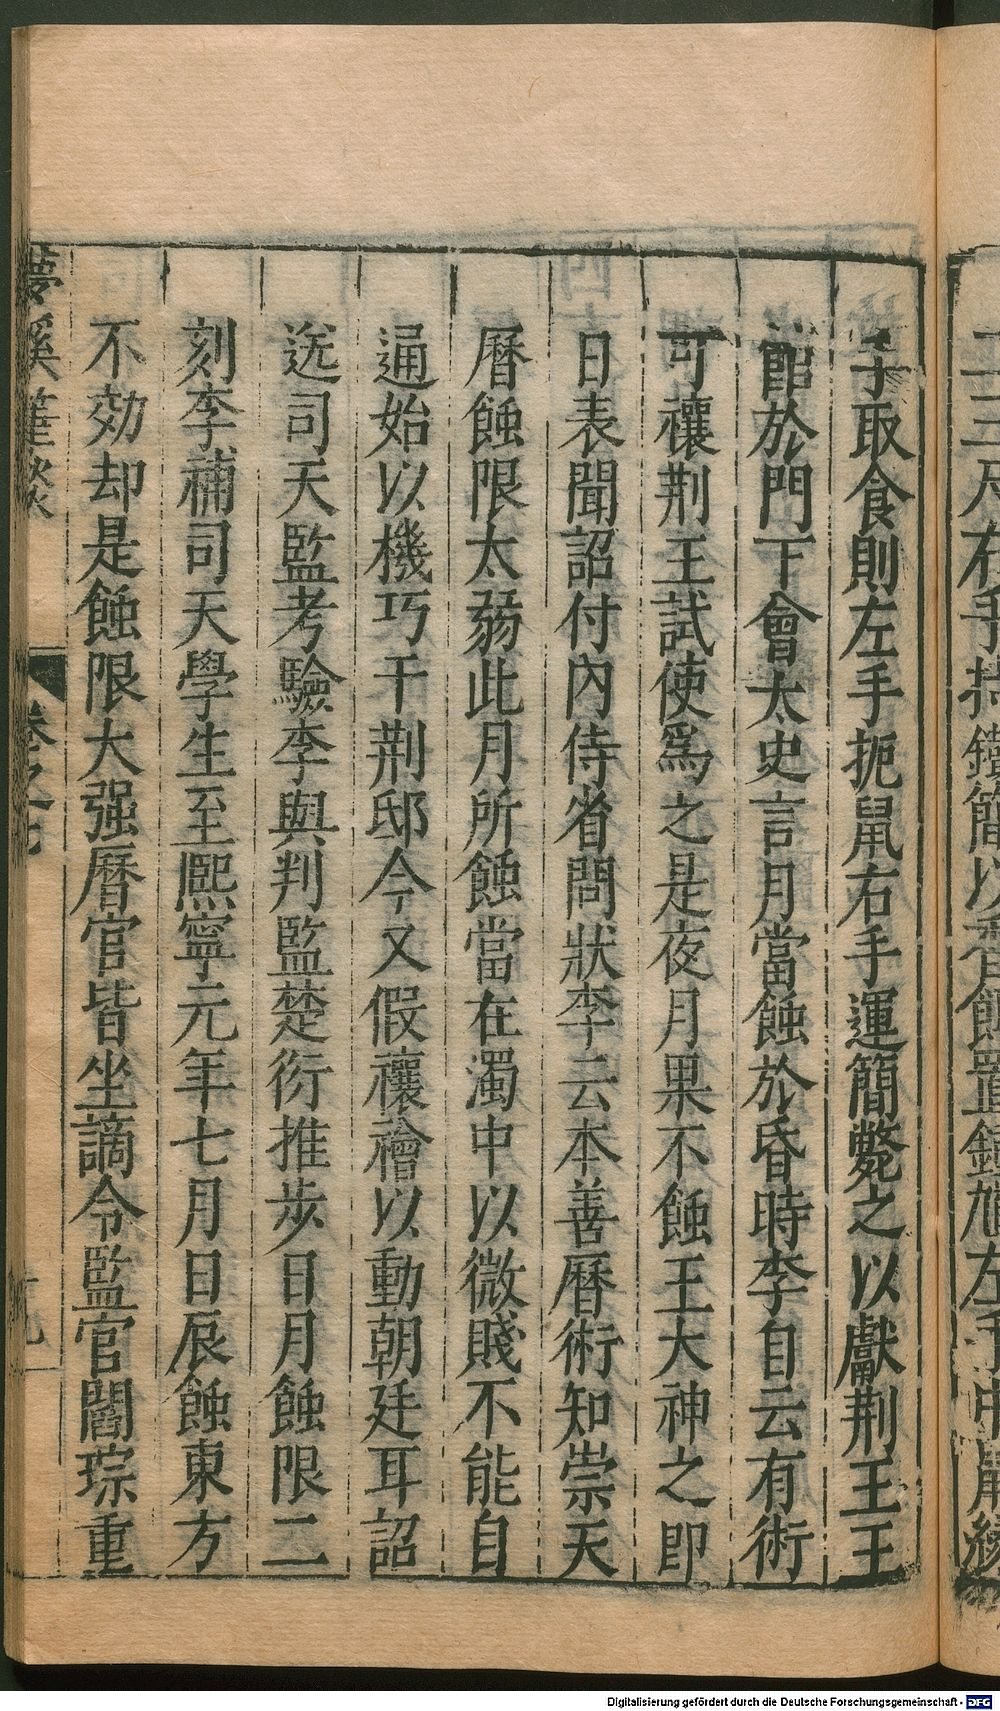 二三尺右手持鐵簡以香餌置鍾馗左手中鼠緣
手取食則左手扼鼠右手運簡斃之以獻荆王王
舘於門下會太史言月當蝕於昏時李自云有術
可禳荆王試使爲之是夜月果不蝕王大神之即
日表聞詔付內侍省問狀李云本善曆術知崇天
曆蝕限太弱此月所蝕當在濁中以微賤不能自
通始以機巧干荆邸今又假禳禬以動朝廷耳詔
送司天監考驗李與判監楚衍推步日月蝕限二
刻李補司天學生至熙寧元年七月日辰蝕東方
不効却是蝕限大强曆官皆坐謫令監官閻琮重
夢溪筆談 卷之七
Digitalisierung gefördert durch die Deutsche Forschungsgemeinschaft - DFG